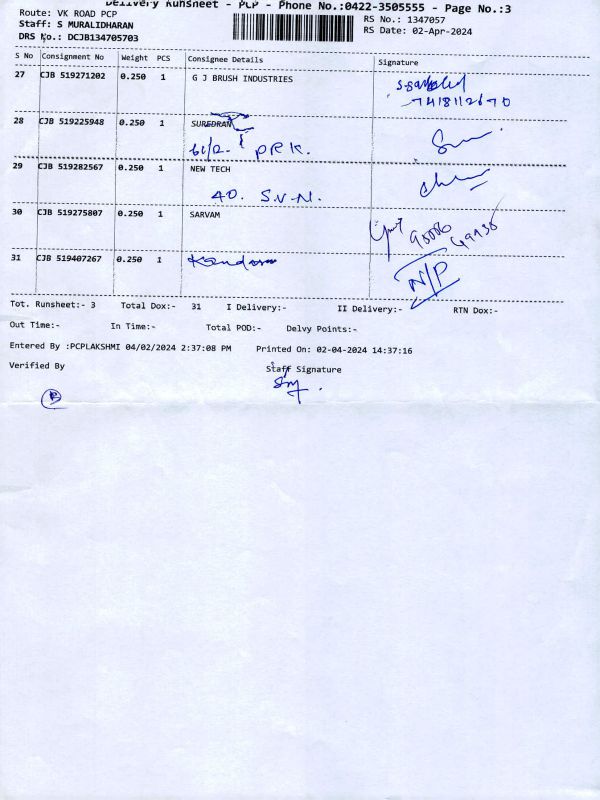 Delivery Runsheet - PCP - Phone No.:0422-3505555 - Page No.:3
Route: VK ROAD PCP
RS No.: 1347057
Staff: S MURALIDHARAN
RS Date: 02-Apr-2024
DRS No.: DCJB134705703
S No Consignment No Weight PCS Consignee Details Signature
27 CJB 519271202 0.250 1 G J BRUSH INDUSTRIES
7418112670
28 CJB 519225948 0.250 1 SUREDRAN
61/2- PRK.
29 CJB 519282567 0.250 1 NEW TECH
40. S.V.N.
30 CJB 519275807 0.250 1 SARVAM
31 CJB 519407267 0.250 1
N/P
Tot. Runsheet:- 3 Total Dox:- 31 I Delivery:- II Delivery:- RTN Dox:-
Out Time:- In Time:- Total POD:- Delvy Points:-
Entered By :PCPLAKSHMI 04/02/2024 2:37:08 PM Printed On: 02-04-2024 14:37:16
Verified By Staff Signature